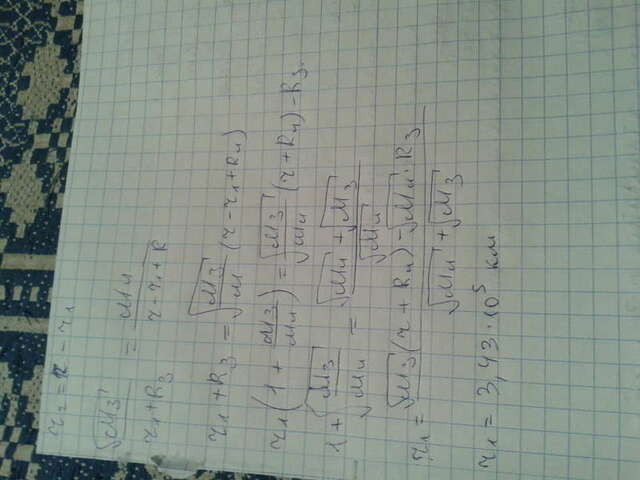 r₂ = r - r₁
√M₃ / (r₁ + R₃) = Mл / (r - r₁ + R)
r₁ + R₃ = √M₃ / √M (r - r₁ + Rл)
r₁ (1 + √M₃ / √Mл) = √M₃ / √Mл (r + Rл) - R₃
1 + √M₃ / √Mл = (√Mл + √M₃) / √Mл
r₁ = (√M₃ (r + Rл) - √Mл · R₃) / (√Mл + √M₃)
r₁ = 3,43 · 10⁵ км